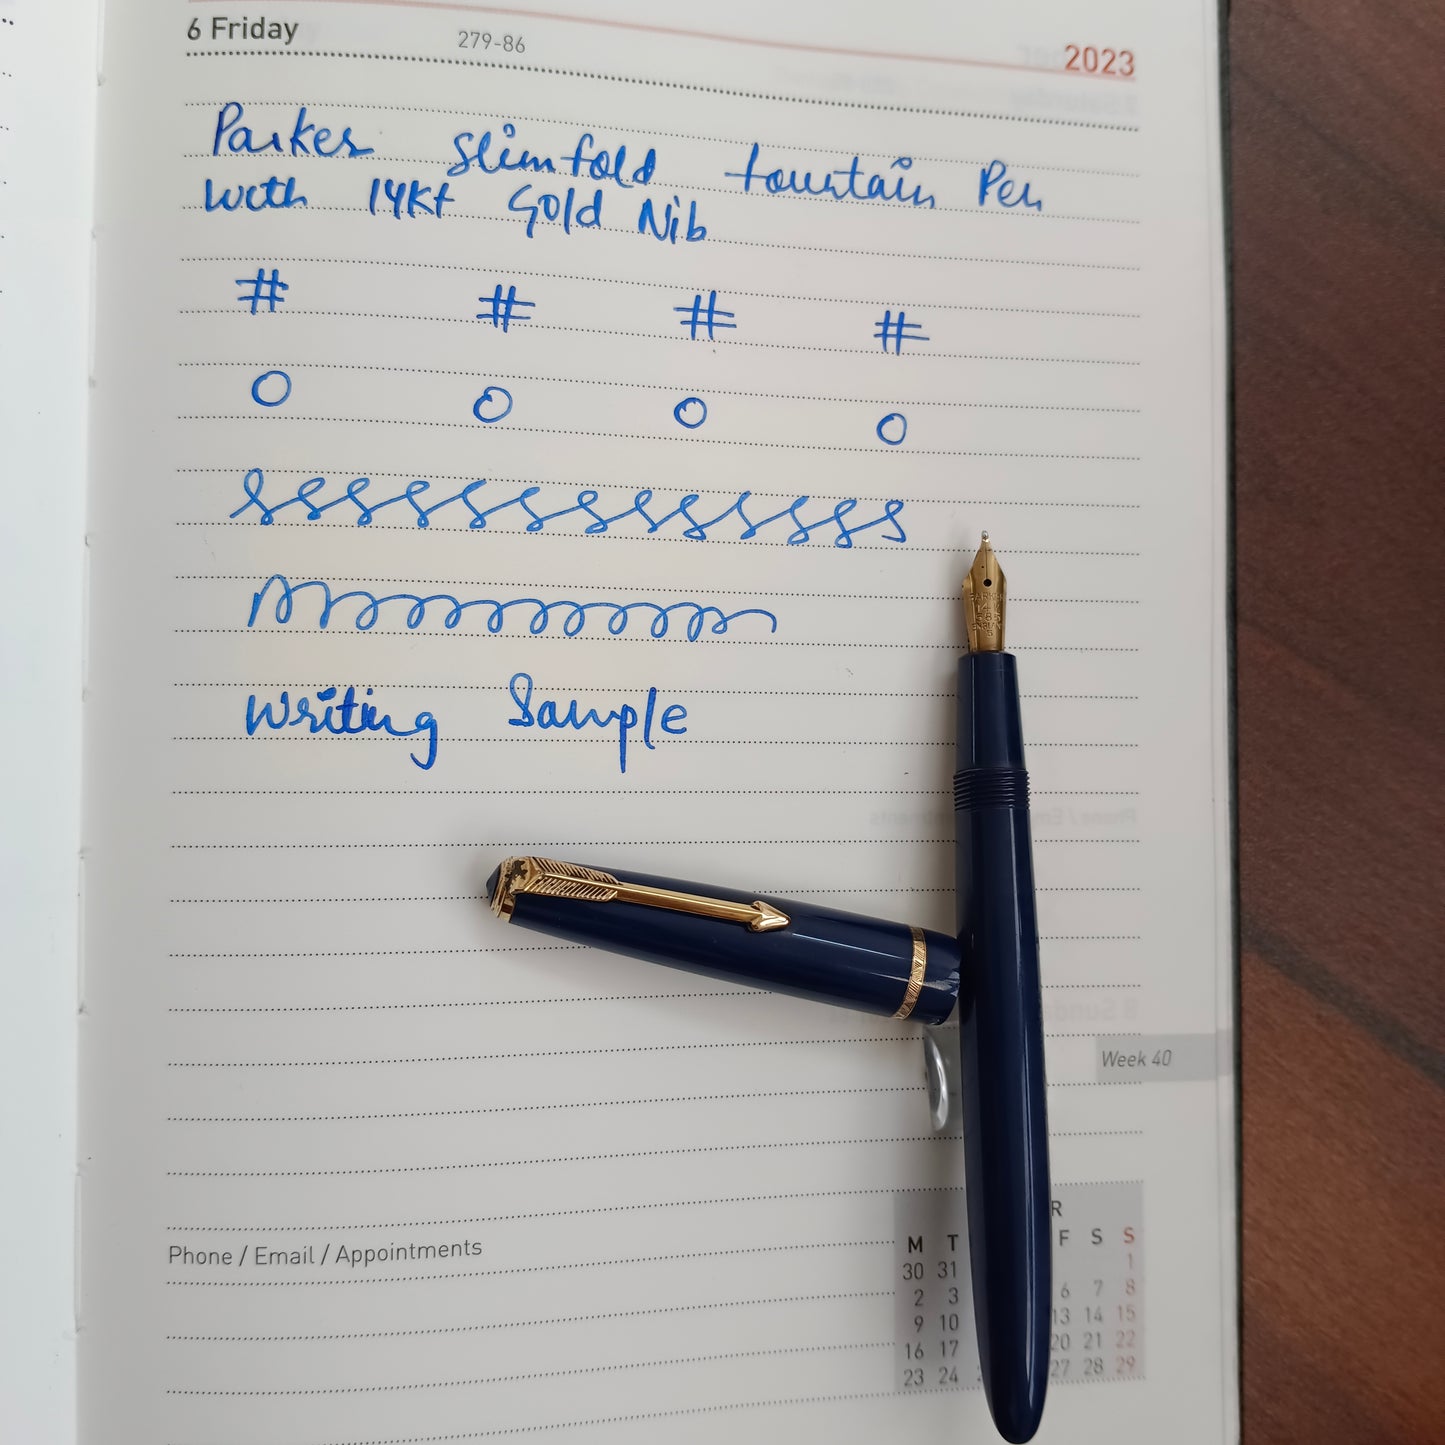 6 Friday 279-86 2023
Parker Slimfold fountain Pen
with 14Kt Gold Nib
# # # #
O O O O
Writing Sample
PARKER
14K
585
ENGLAND
5
Week 40
Phone / Email / Appointments
R
M T F S S
30 31 1
2 3 6 7 8
9 10 13 14 15
16 17 20 21 22
23 24 27 28 29